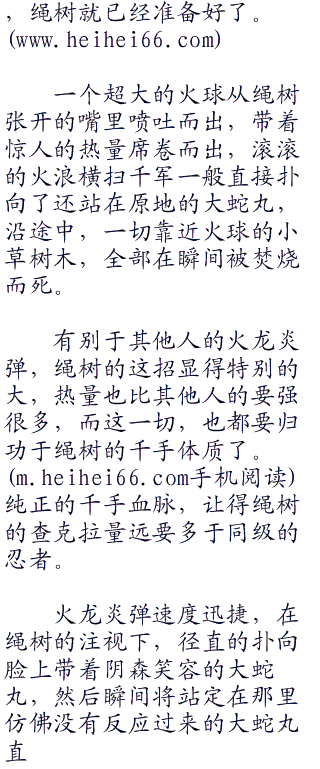 ，绳树就已经准备好了。
(www.heihei66.com)
一个超大的火球从绳树
张开的嘴里喷吐而出，带着
惊人的热量席卷而出，滚滚
的火浪横扫千军一般直接扑
向了还站在原地的大蛇丸，
沿途中，一切靠近火球的小
草树木，全部在瞬间被焚烧
而死。
有别于其他人的火龙炎
弹，绳树的这招显得特别的
大，热量也比其他人的要强
很多，而这一切，也都要归
功于绳树的千手体质了。
(m.heihei66.com手机阅读)
纯正的千手血脉，让得绳树
的查克拉量远要多于同级的
忍者。
火龙炎弹速度迅捷，在
绳树的注视下，径直的扑向
脸上带着阴森笑容的大蛇
丸，然后瞬间将站定在那里
仿佛没有反应过来的大蛇丸
直